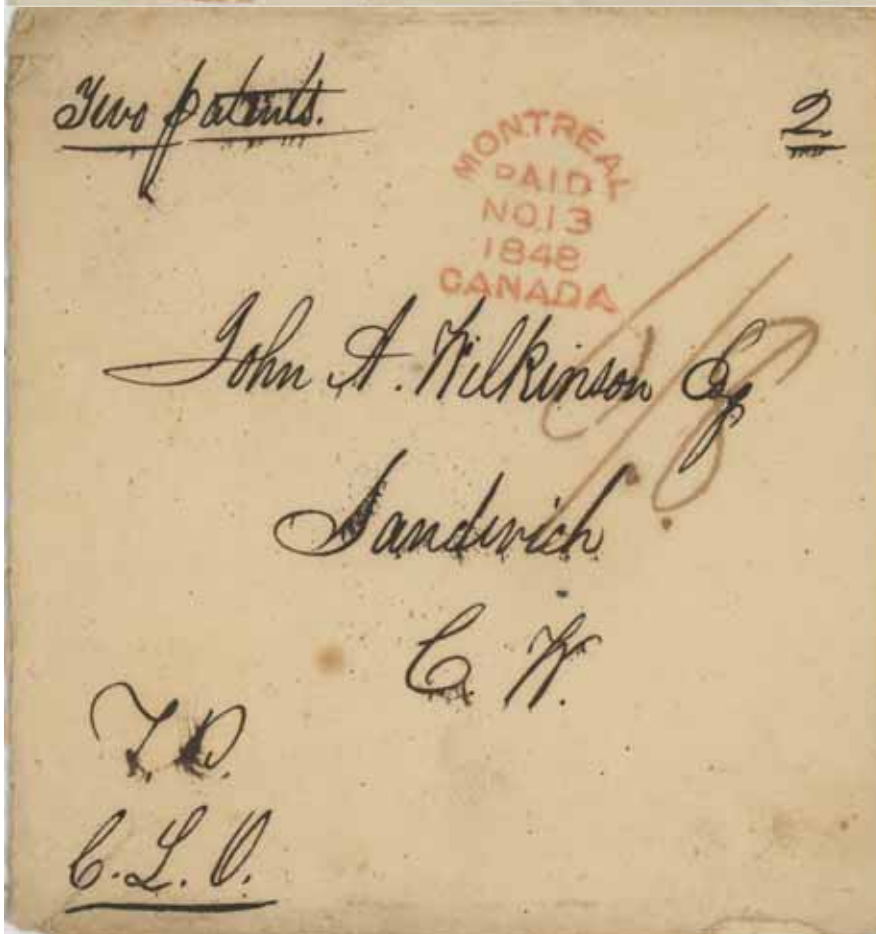 Two patents.
2
MONTREAL
PAID
NO 13
1848
CANADA
John A. Wilkinson Esq
Sandwich
C. W.
C. L. O.